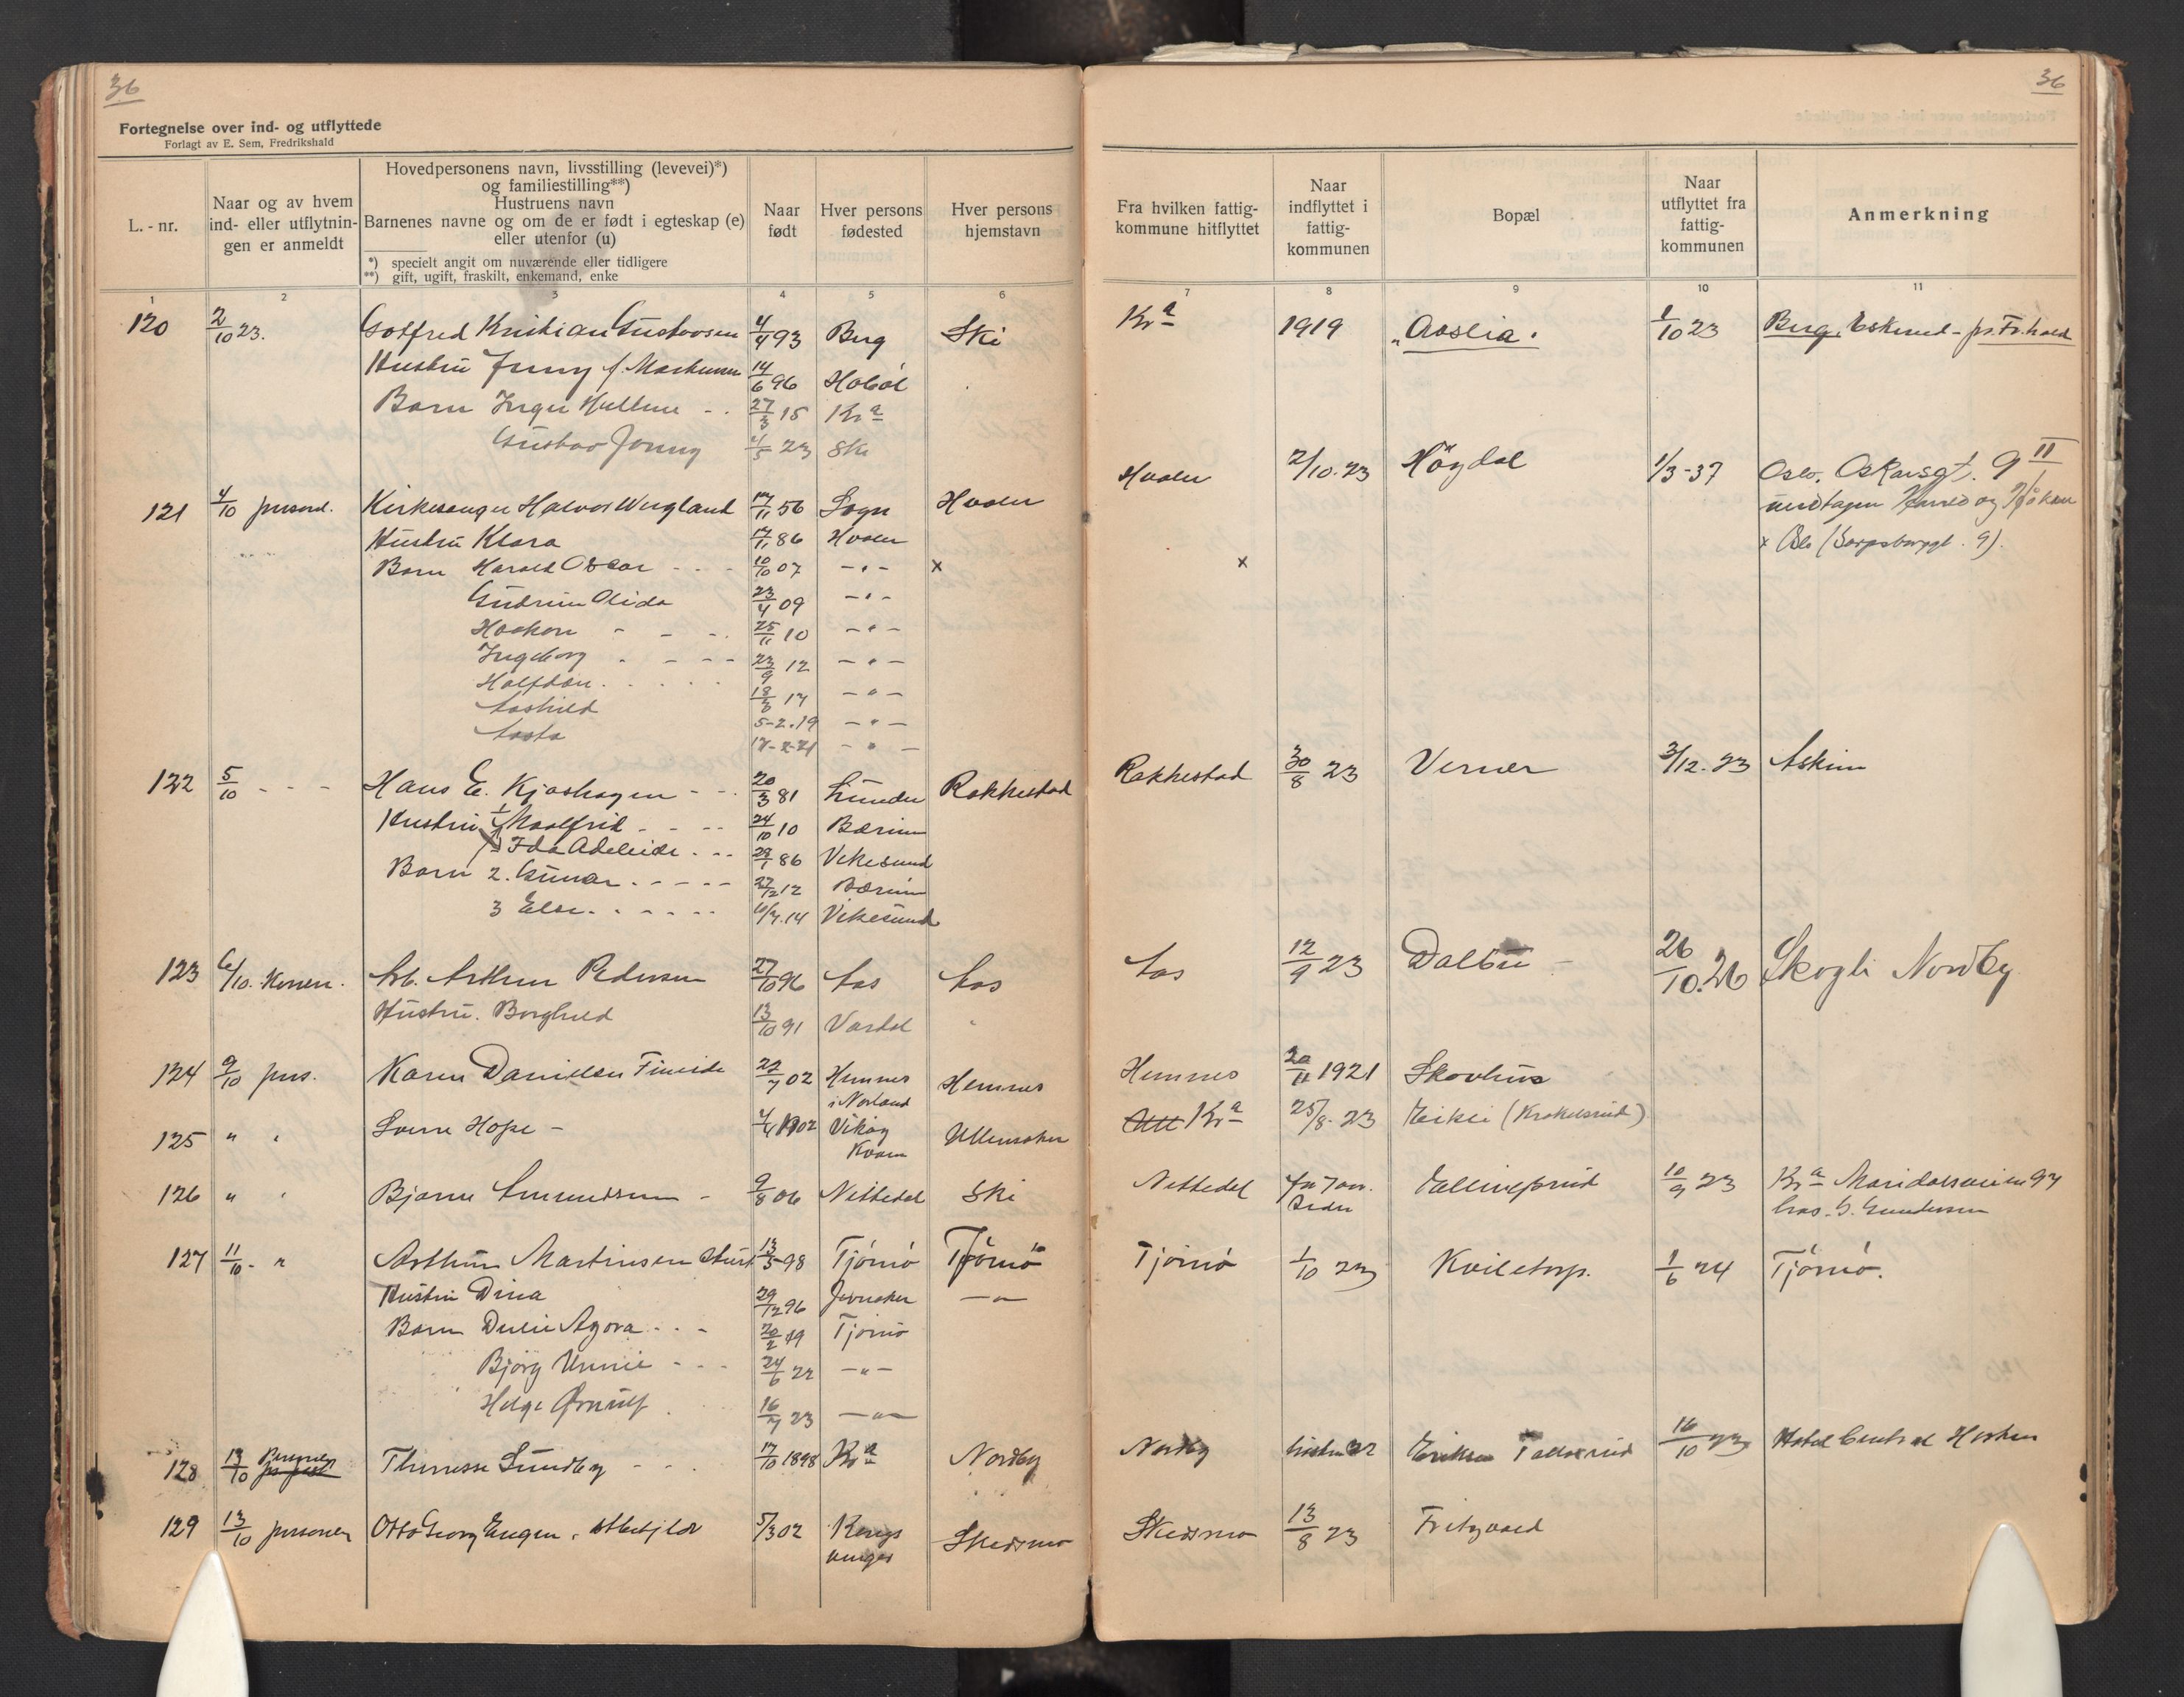 36
36
Fortegnelse over ind- og utflyttede
Forlagt av E. Sem, Fredrikshald
L. - nr.
Naar og av hvem ind- eller utflytnin-gen er anmeldt
Hovedpersonens navn, livsstilling (levevei)*)
og familiestilling**)
Hustruens navn
Barnenes navne og om de er født i egteskap (e)
eller utenfor (u)
*) specielt angit om nuværende eller tidligere
**) gift, ugift, fraskilt, enkemand, enke
Naar født
Hver persons fødested
Hver persons hjemstavn
Fra hvilken fattig-kommune hitflyttet
Naar indflyttet i fattig-kommunen
Bopæl
Naar utflyttet fra fattig-kommunen
Anmerkning
1 2 3 4 5 6 7 8 9 10 11
120 2/10 23. Gotfred Kristian Gustavsen 4/4 93 Berg Ski Kra 1919 "Aaslia. 1/10 23 Berg, Eskerud - pr. Fr.hald
Hustru Jenny f. 14/6 96 Hobøl
Barn Inger 27/3 15 Kra
Gustav Jonny 4/5 23 Ski
121 4/10 personl. Kirkesanger Halvor Wergland 17/11 56 Sogn Hvaler Hvaler 2/10. 23 Högdal 1/3-37 Oslo. Oskarsgt. 9 II
Hustru Klara 17/11 86 Hvaler undtagen Harald og Håkon
x Oslo (Sarpsborggt. 9).
Barn Harald Oscar - - - 10/10 07 -"- x x
Gudrun Alida 23/4 09 -"-
Haakon - - - 25/11 10 -"-
Ingeborg - - - - 23/9 12 -"-
Halfdan. . . . . 18/3 17 -"-
Aashild 5-2.19 -"-
Aasta 17-2-21 -"-
122 5/10 - - - Hans E. Kjoshagen - - 20/3 81 Lunder Rakkestad Rakkestad 30/8 23 Verner 3/12. 23 Askim
Hustru 1/ Maalfrid - - - 24/10 10 Bærum
Ida Adeleide - - - 29/1 86 Vikesund
Barn 2. Gunar - - - - - 27/12 12 Bærum
3 Else - - - - - 14 Vikesund
123 6/10. Konen. Arb. Arthur Pedersen 27/10 96 Aas Aas Aas 12/9 23 Dalbu - 26/10. 26 Skogli Nordby
Hustru. Borghild 13/10 91 Vardal "
124 9/10 pers. Karen Danielsen 22/7 02 Hemnes i Norland Hemnes Hemnes 20/11 1921 Skovhus
125 " " Sverre Hope - 4/4 1902 Vikøy Kvam Ullensaker Kra 25/8. 23 Eikeli (Krokelsrud)
126 " " Bjarne Amundsen - 9/8 06 Nittedal Ski Nittedal 10/9 23 Kra Maridalsveien 97
127 11/10 - " Arthur Martinsen 13/5 98 Tjømø Tjømø Tjömö 1/10 23 Kviletorp. 1/6 24 Tjömö.
Hustru Dina 29/12 96 Jevnaker -"-
Barn Agora - - - 20/2 19 Tjömö
Bjørg Unnie - - - 24/6 22 -"-
Helge Ørnulf 16/7 23 -"-
128 13/10 Theresse Sundby - - - 17/10 1898 Kra Nordby Nordby 16/10 23 Hotel Central
129 13/10 personen Otto Georg Engen, 5/3 02 Kongsvinger Skedsmo Skedsmo 13/8 23